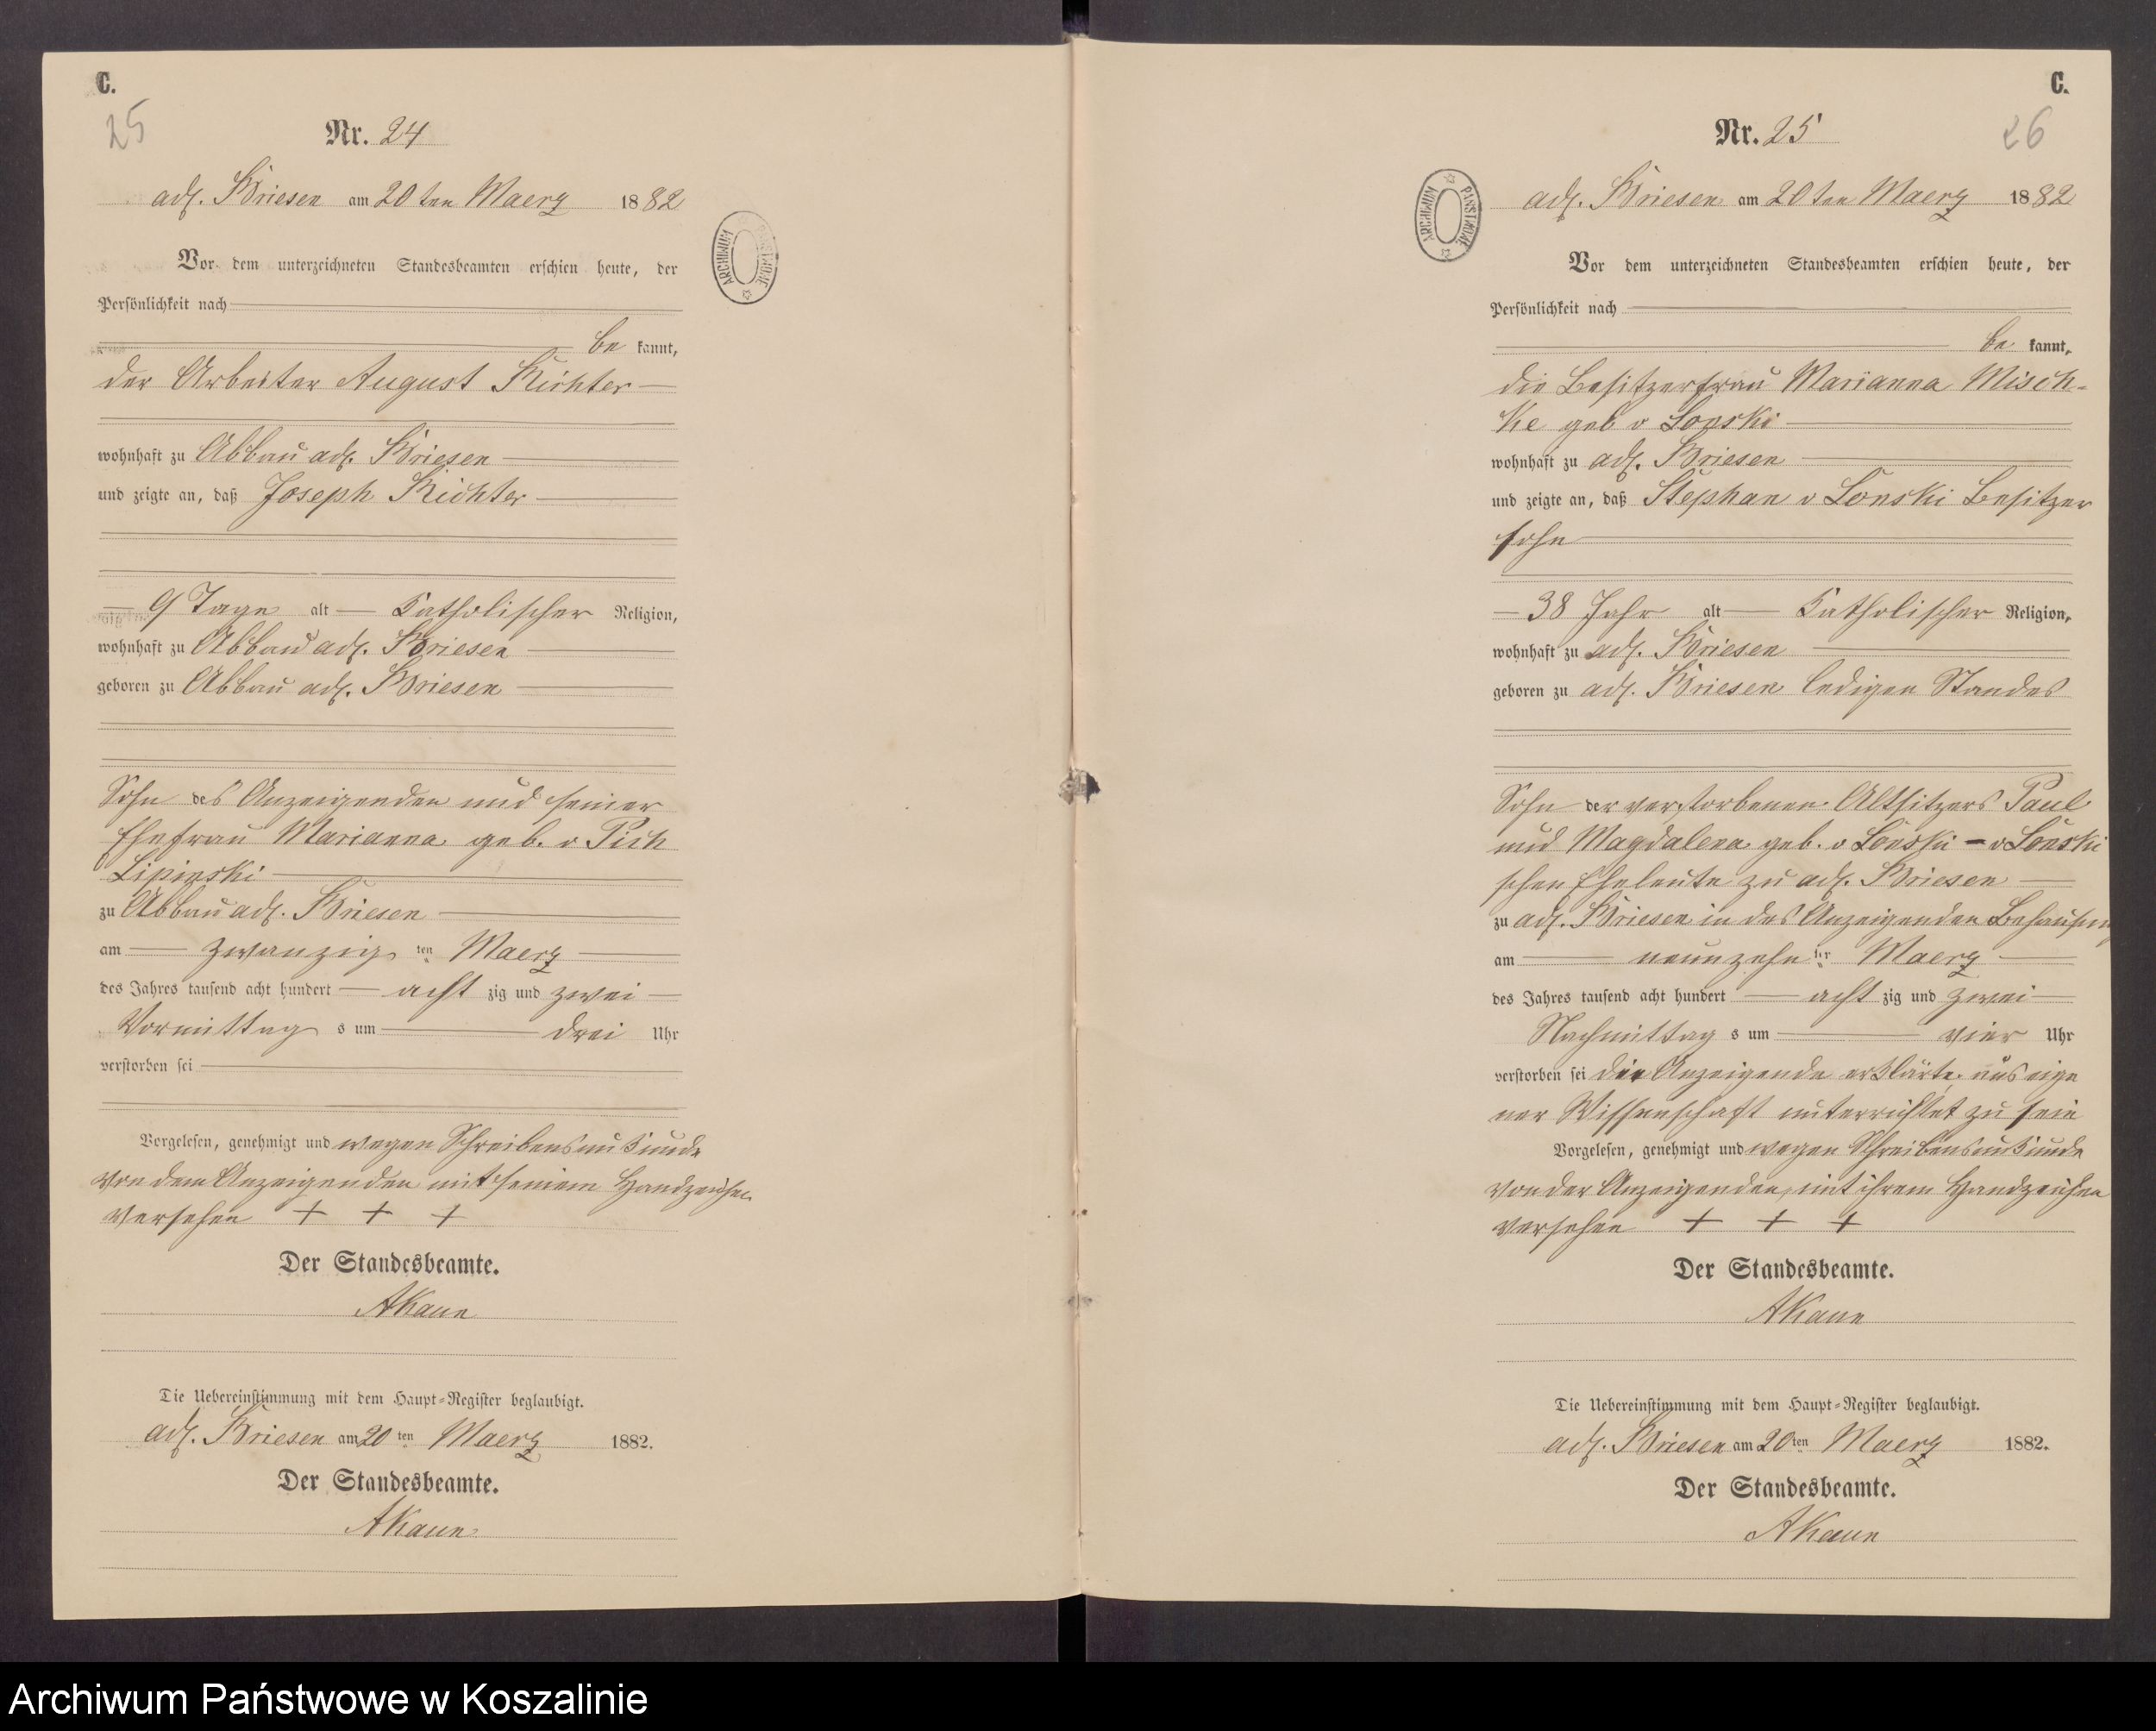 C.
25
Nr. 24
adl. Briesen am 20ten Maerz 1882
Vor dem unterzeichneten Standesbeamten erschien heute, der
Persönlichkeit nach
be kannt,
der Arbeiter August Richter
wohnhaft zu Abbau adl. Briesen
und zeigte an, daß Joseph Richter
9 Tage alt katholischer Religion,
wohnhaft zu Abbau adl. Briesen
geboren zu Abbau adl. Briesen
Sohn des Anzeigenden und seiner
Ehefrau Marianna geb. v Pich
Lipinski
zu Abbau adl. Briesen
am zwanzig ten Maerz
des Jahres tausend acht hundert acht zig und zwei
Vormittag s um drei Uhr
verstorben sei
Vorgelesen, genehmigt und wegen Schreibensunkunde
von dem Anzeigenden mit seinem Handzeichen
versehen + + +
Der Standesbeamte.
AKaun
Die Uebereinstimmung mit dem Haupt-Register beglaubigt.
adl. Briesen am 20 ten Maerz 1882.
Der Standesbeamte.
AKaun
ARCHIWUM PAŃSTWOWE
C.
26
Nr. 25
adl. Briesen am 20ten Maerz 1882
Vor dem unterzeichneten Standesbeamten erschien heute, der
Persönlichkeit nach
be kannt,
die Besitzerfrau Marianna Misch-
ke geb v Lonski
wohnhaft zu adl. Briesen
und zeigte an, daß Stephan v Lonski Besitzer
sohn
38 Jahr alt katholischer Religion,
wohnhaft zu adl. Briesen
geboren zu adl. Briesen ledigen Standes
Sohn der verstorbenen Altsitzers Paul
und Magdalena geb. v Lonski - v Lonski
schen Eheleute zu adl. Briesen
zu adl. Briesen in des Anzeigenden Behausung
am neunzehn ten Maerz
des Jahres tausend acht hundert acht zig und zwei
Nachmittag s um vier Uhr
verstorben sei die Anzeigende erklärte, aus eige
ner Wissenschaft unterrichtet zu sein
Vorgelesen, genehmigt und wegen Schreibensunkunde
von der Anzeigenden mit ihrem Handzeichen
versehen + + +
Der Standesbeamte.
AKaun
Die Uebereinstimmung mit dem Haupt-Register beglaubigt.
adl. Briesen am 20 ten Maerz 1882.
Der Standesbeamte.
AKaun
ARCHIWUM PAŃSTWOWE
Archiwum Państwowe w Koszalinie